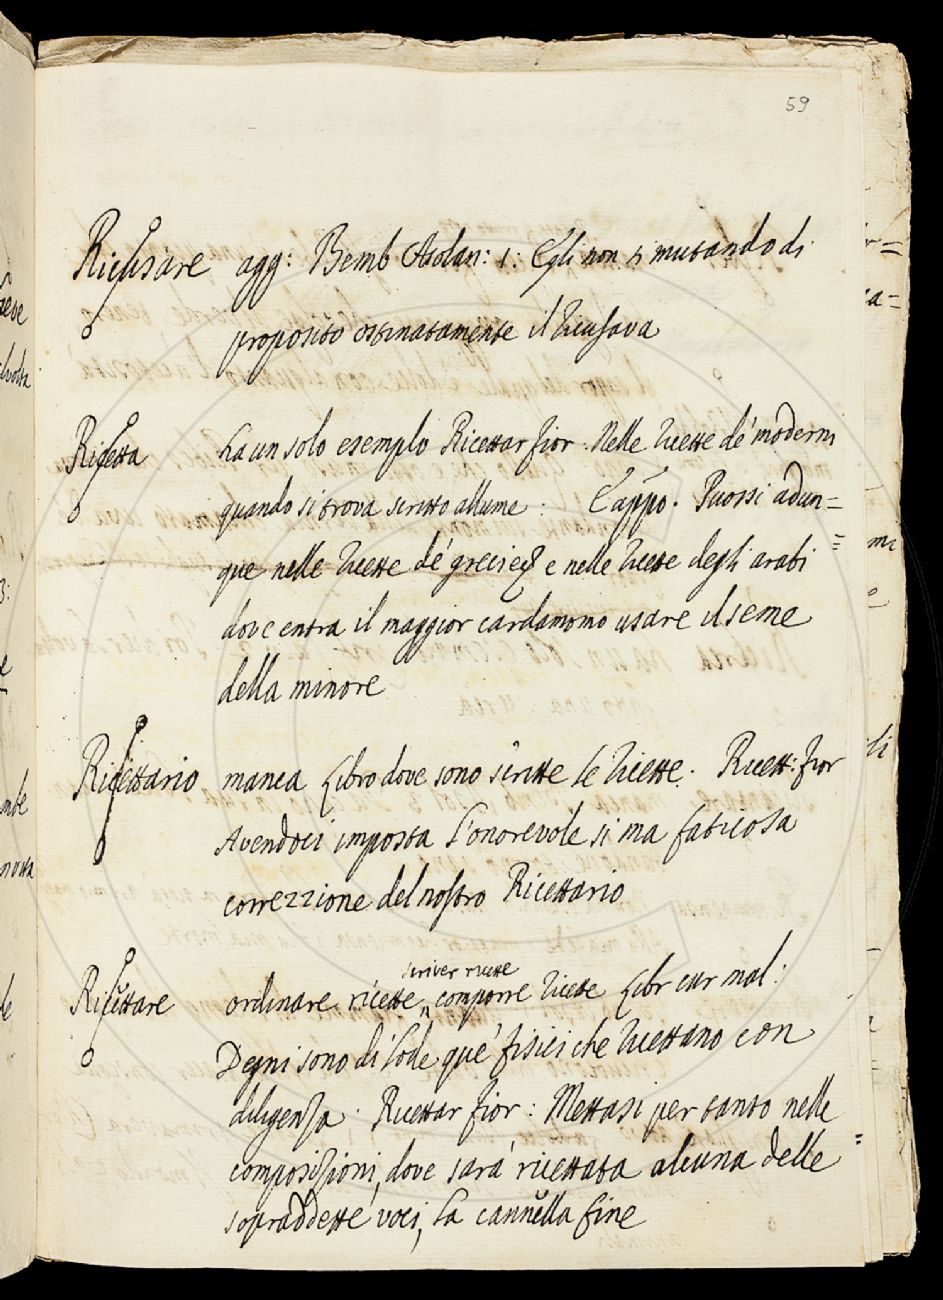 59
Ricusare agg: Bemb Asolan: 1: Egli non si mutando di
proposito ostinatamente il ricusava
Ricetta ha un solo esempio Ricettar fior: Nelle ricette de' moderni
quando si trova scritto allume: E appo. Puossi adun=
que nelle ricette de' greci e nelle ricette degli arabi
dove entra il maggior cardamomo usare il seme
della minore
Ricettario manca Libro dove sono scritte le ricette. Ricett: fior
Avendoci imposta l'onorevole si ma faticosa
correzzione del nostro Ricettario
scriver ricette
Ricettare ordinare ricette, comporre ricette Libr cur mal:
Degni sono di lode que' fisici che ricettano con
diligenza. Ricettar fior: Mettasi per tanto nelle
composizioni, dove sarà ricettata alcuna delle
sopraddette voci, la cannella fine